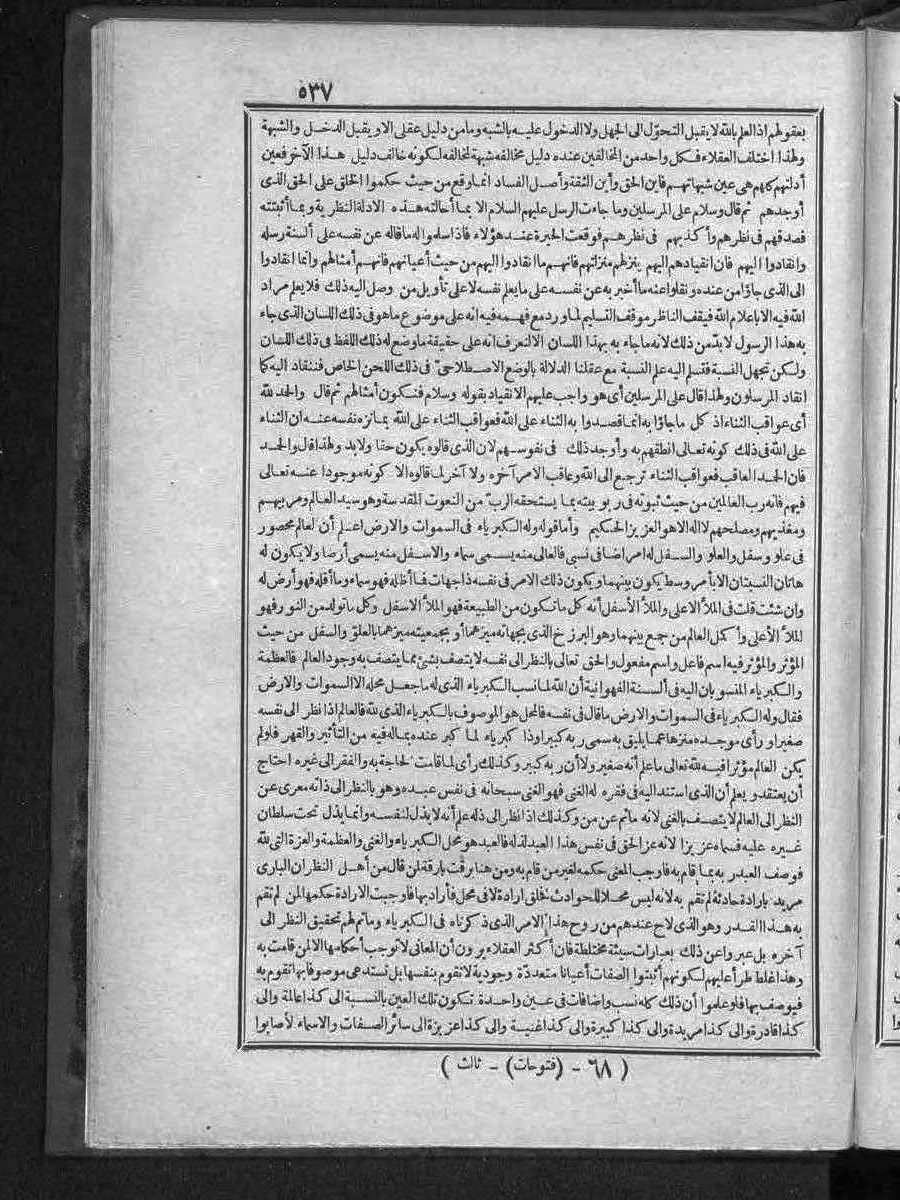 ٥٣٧
بعقولهم اذ العلم بالله لا يقبل التحوّل الى الجهل ولا الدخول عليه بالشبه وما من دليل عقلى الا ويقبل الدخل والشبهة
ولهذا اختلف العقلاء فكل واحد من المخالفين عنده دليل مخالفه شبهة لمخالفه لكونه خالف دليل هذا الآخر فعين
أدلتهم كلهم هى عين شبهاتهم فاين الحق وأين الثقة وأصل الفساد انما وقع من حيث حكموا الخلق على الحق الذى
أوجدهم ثم قال وسلام على المرسلين وما جاءت الرسل عليهم السلام الا بما أحالته هذه الادلة النظرية وبما أثبتته
فصدقهم فى نظرهم وأكذبهم فى نظرهم فوقعت الحيرة عند هؤلاء فاذا سلموا له ما قاله عن نفسه على ألسنة رسله
وانقادوا اليهم فان انقيادهم اليهم ينزلهم منزلتهم فانهم ما انقادوا اليهم من حيث أعيانهم فانهم أمثالهم وانما انقادوا
الى الذى جاؤا من عنده ونقلوا عنه ما أخبر به عن نفسه على ما يعلم نفسه لا على تأويل من وصل اليه ذلك فلا يعلم مراد
الله فيه الا باعلام الله فيقف الناظر موقف التسليم لما ورد مع فهمه فيه انه على موضوع ما هو فى ذلك اللسان الذى جاء
به هذا الرسول لا بدّ من ذلك لانه ما جاء به بهذا اللسان الا لنعرف انه على حقيقة ما وضع له ذلك اللفظ فى ذلك اللسان
ولكن تجهل النسبة فنسلم اليه علم النسبة مع عقلنا الدلالة بالوضع الاصطلاحىّ فى ذلك اللحن الخاص فننقاد اليه كما
انقاد المرسلون ولهذا قال على المرسلين أى هو واجب عليهم الانقياد بقوله وسلام فنكون أمثالهم ثم قال والحمد لله
أى عواقب الثناء اذ كل ما جاؤا به انما قصدوا به الثناء على الله فعواقب الثناء على الله بما نزه نفسه عنه ان الثناء
على الله فى ذلك كونه تعالى انطقهم به وأوجد ذلك فى نفوسهم لان الذى قالوه يكون حقا ولا بد ولهذا قال والحمد
فان الحمد العاقب فعواقب الثناء ترجع الى الله وعاقب الامر آخره ولا آخر لما قالوه الا كونه موجودا عنه تعالى
فيهم فانه رب العالمين من حيث ثبوته فى ربوبيته بما يستحقه الرب من النعوت المقدسة وهو سيد العالم ومربيهم
ومغذيهم ومصلحهم لا اله الا هو العزيز الحكيم وأما قوله وله الكبرياء فى السموات والارض اعلم أن العالم محصور
فى علو وسفل والعلو والسفل له امر اضافى نسبى فالعالى منه يسمى سماء والاسفل منه يسمى أرضا ولا يكون له
هاتان النسبتان الا بأمر وسط يكون بينهما ويكون ذلك الامر فى نفسه ذا جهات فما أظله فهو سماء وما أقله فهو أرض له
وان شئت قلت فى الملأ الاعلى والملأ الأسفل أنه كل ما تكون من الطبيعة فهو الملأ الاسفل وكل ما تولد من النور فهو
الملأ الأعلى وأكمل العالم من جمع بينهما وهو البرزخ الذى بجهاته ميزهما أو بجمعيته ميزهما بالعلوّ والسفل من حيث
المؤثر والمؤثر فيه اسم فاعل واسم مفعول والحق تعالى بالنظر الى نفسه لا يتصف بشئ مما يتصف به وجود العالم فالعظمة
والكبرياء المنسوبان اليه فى ألسنة الفهوانية أن الله لما نسب الكبرياء الذى له ما جعل محله الا السموات والارض
فقال وله الكبرياء فى السموات والارض ما قال فى نفسه فالمحل هو الموصوف بالكبرياء الذى لله فالعالم اذا نظر الى نفسه
صغيرا ورأى موجده منزها عما يليق به سمى ربه كبيرا وذا كبرياء لما كبر عنده بماله فيه من التأثير والقهر فلو لم
يكن العالم مؤثرا فيه لله تعالى ما علم أنه صغير ولا أن ربه كبير وكذلك رأى لما قامت الحاجة به والفقر الى غيره احتاج
أن يعتقد ويعلم أن الذى استند اليه فى فقره له الغنى فهو الغنى سبحانه فى نفس عبده وهو بالنظر الى ذاته معرى عن
النظر الى العالم لا يتصف بالغنى لانه ما ثم عن من وكذلك اذا نظر الى ذله علم أنه لا يذل لنفسه وانما يذل تحت سلطان
غيره عليه فسماه عزيزا لانه عز الحق فى نفس هذا العبد لذله فالعبد هو محل الكبرياء والغنى والعظمة والعزة التى لله
فوصف العبد ربه بما قام به فاوجب المعنى حكمه لغير من قام به ومن هنا برقت بارقة لمن قال من أهل النظر ان البارى
مريد بارادة حادثة لم تقم به لانه ليس محلا للحوادث فخلق ارادة لا فى محل فأراد بها فاوجبت الارادة حكمها لمن لم تقم
به هذا القدر وهو الذى لاح عندهم من روح هذا الامر الذى ذكرناه فى الكبرياء وما تم لهم تحقيق النظر الى
آخره بل عبروا عن ذلك بعبارات سيئة مختلطة فان أكثر العقلاء يرون أن المعانى لا توجب أحكامها الا لمن قامت به
وهذا غلط طرأ عليهم لكونهم أثبتوا الصفات أعيانا متعدّدة وجودية لا تقوم بنفسها بل تستدعى موصوفا بها تقوم به
فيوصف بها فلو علموا أن ذلك كله نسب واضافات فى عين واحدة تكون تلك العين بالنسبة الى كذا عالمة والى
كذا قادرة والى كذا مريدة والى كذا كبيرة والى كذا غنية والى كذا عزيزة الى سائر الصفات والاسماء لأصابوا
( ٦٨ - (فتوحات) - ثالث )